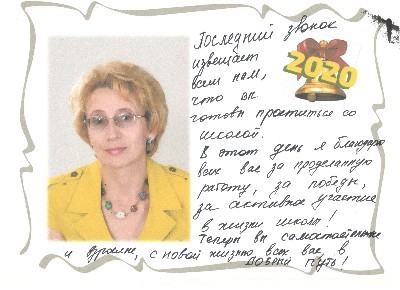 Последний звонок
извещает
всем нам,
что вы
готовы проститься со
школой.
В этот день я благодарю
всех вас за проделанную
работу, за победы,
за активное участие
в жизни школы!
Теперь вы самостоятельные
и взрослые, с новой жизнью всех вас, в
добрый путь!
2020